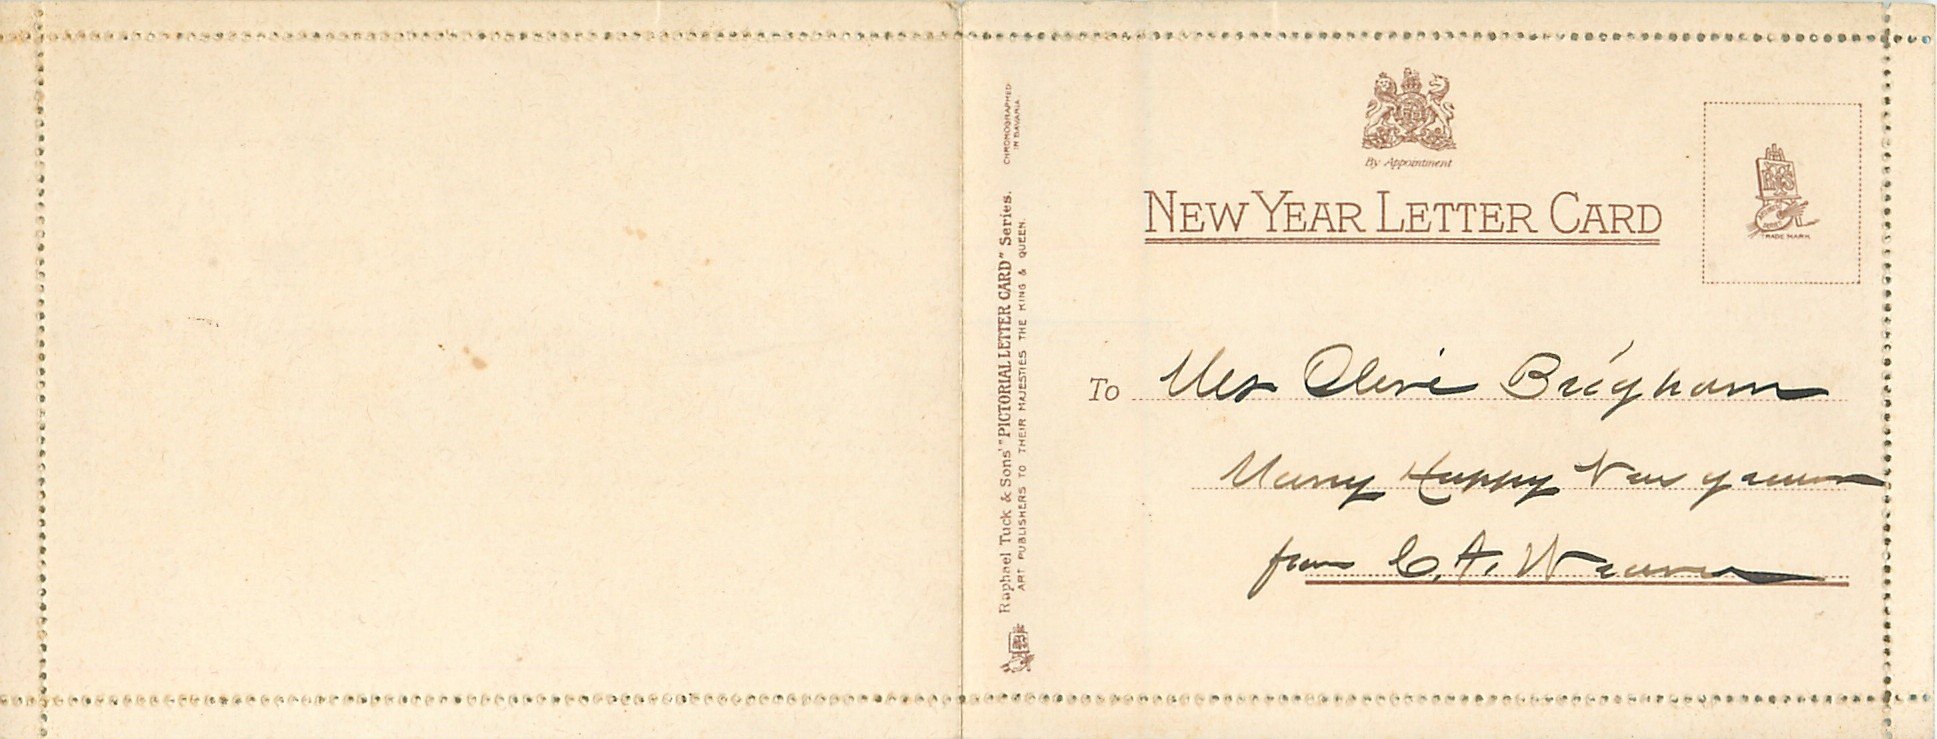 By Appointment
NEW YEAR LETTER CARD
TRADE MARK
CHROMOGRAPHED
IN BAVARIA
Raphael Tuck & Sons' "PICTORIAL LETTER CARD" Series.
ART PUBLISHERS TO THEIR MAJESTIES THE KING & QUEEN.
To Mrs Olive Brigham
Many Happy New years
from C. A.